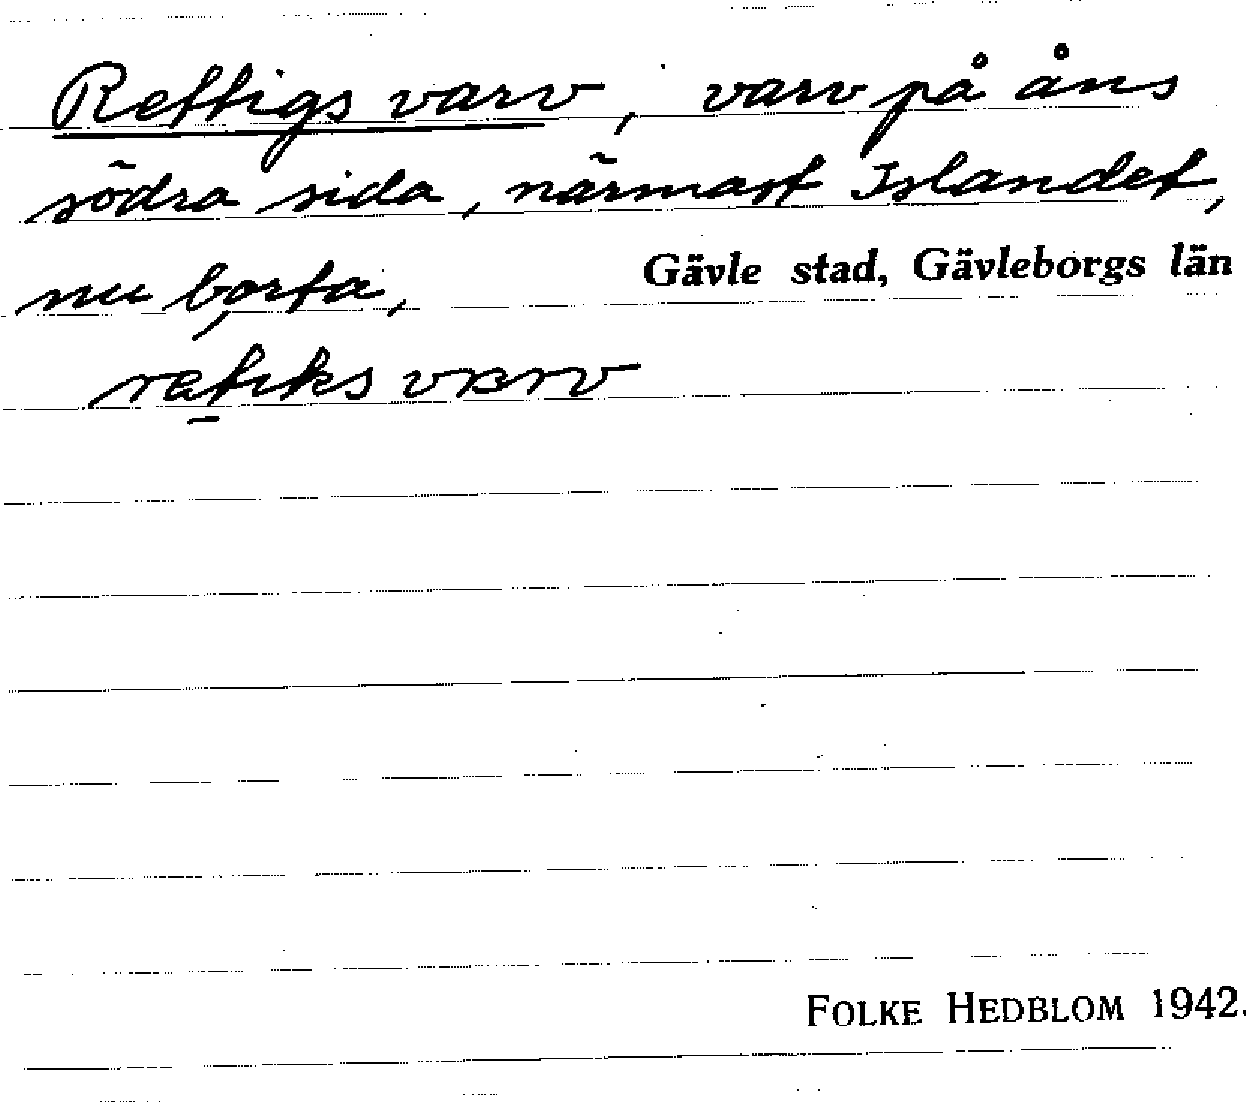 Rettigs varv, varv på åns
södra sida, närmast Islandet,
nu borta,
Gävle stad, Gävleborgs län
reṯiks vɒrv
FOLKE HEDBLOM 1942.